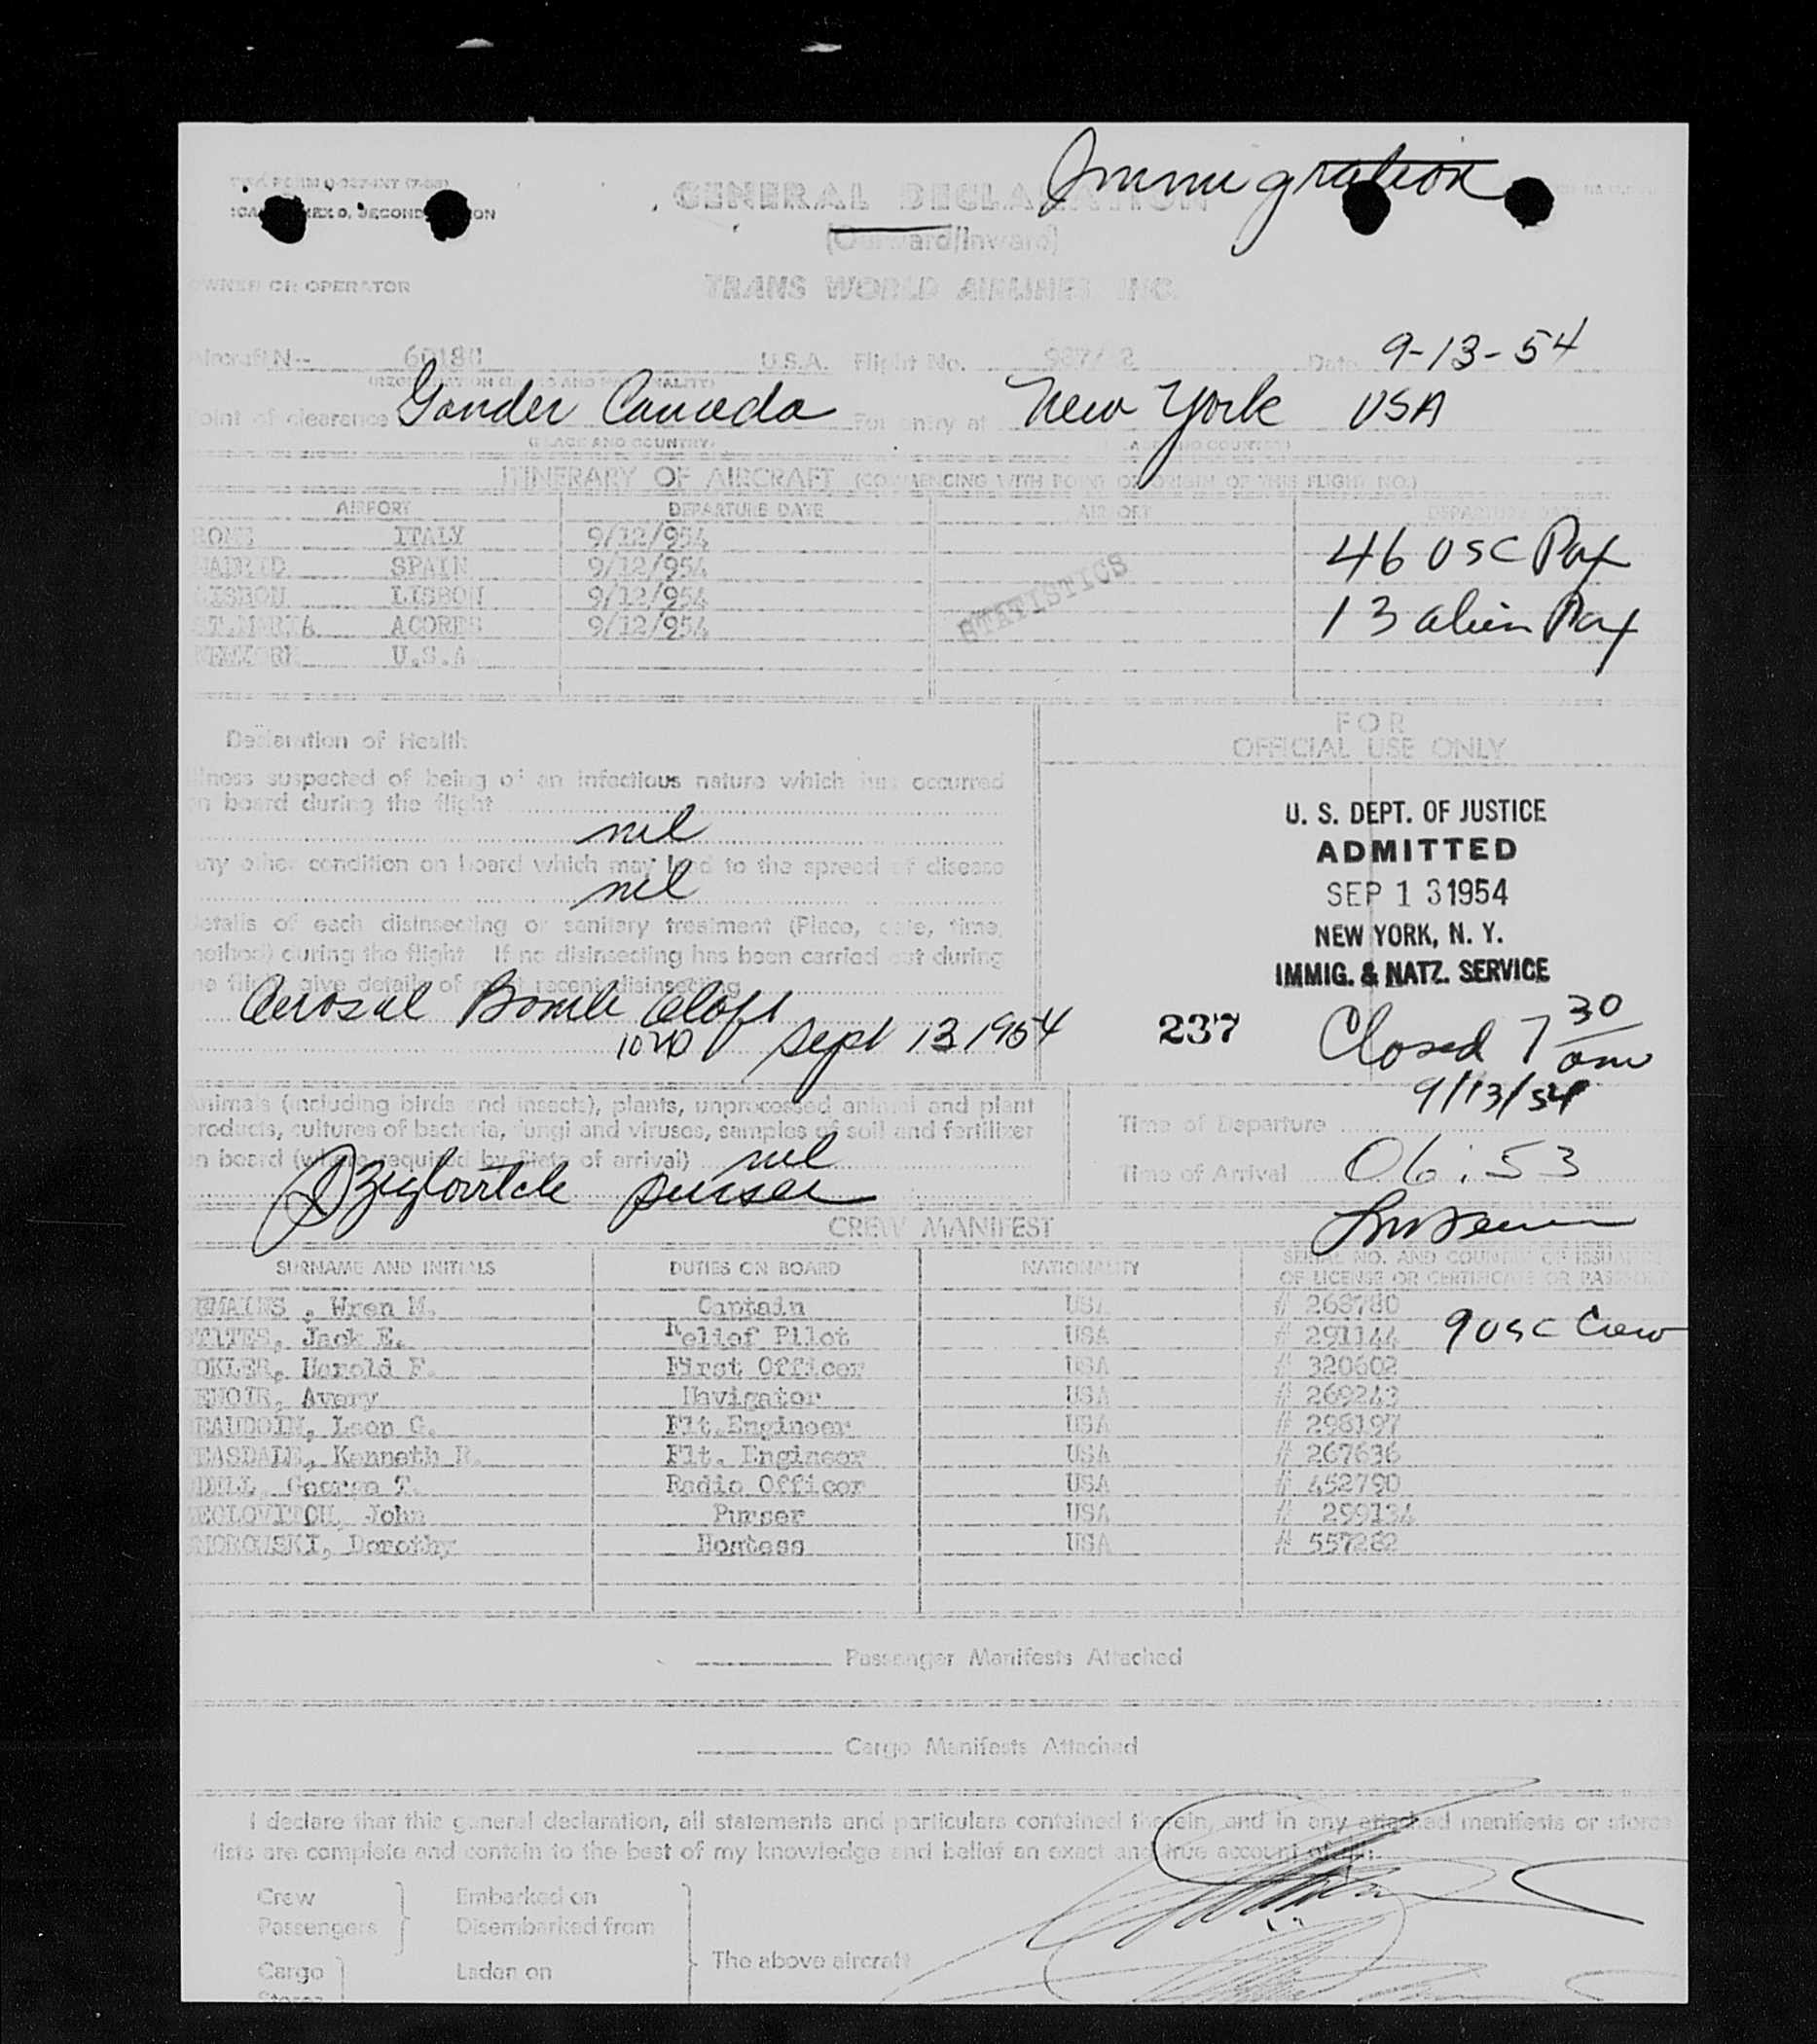 Immigration
GENERAL DECLARATION
(Outward/Inward)
OWNER OR OPERATOR TRANS WORLD AIRLINES INC.
Aircraft N-- U.S.A. Flight No. Date 9-13-54
Point of clearence Gander Canada For entry at New York USA
(PLACE AND COUNTRY)
ITINERARY OF AIRCRAFT (COMMENCING WITH POINT OF ORIGIN OF THIS FLIGHT NO.)
AIRPORT DEPARTURE DATE AIRPORT DEPARTURE DATE
ROME ITALY 9/12/954
46 USC Pax
MADRID SPAIN 9/12/954
LISBON LISBON 9/12/954
13 alien Pax
ST.MARIA ACORES 9/12/954
STATISTICS
NEWYORK U.S.A
Declaration of Health
FOR
OFFICIAL USE ONLY
Illness suspected of being of an infectious nature which has occurred
on board during the flight
nil
Any other condition on board which may lead to the spread of disease
nil
Details of each disinsecting or sanitary treatment (Place, date, time,
method) during the flight. If no disinsecting has been carried out during
the flight give details of most recent disinsecting
Aerosal Bomb aloft
1020 Sept 13 1954
U. S. DEPT. OF JUSTICE
ADMITTED
SEP 13 1954
NEW YORK, N. Y.
IMMIG. & NATZ. SERVICE
237 Closed 7 30 am
9/13/54
Animals (including birds and insects), plants, unprocessed animal and plant
products, cultures of bacteria, fungi and viruses, samples of soil and fertilizer
on board (where required by State of arrival) nil
Purser
Time of Departure
Time of Arrival 06:53
CREW MANIFEST
SURNAME AND INITIALS DUTIES ON BOARD NATIONALITY SERIAL NO. AND COUNTRY OF ISSUANCE
OF LICENSE OR CERTIFICATE OR PASSPORT
Wren M. Captain USA # 268780
Jack E. Relief Pilot USA # 291144 9 USC Crew
Harold F. First Officer USA # 320602
Avery Navigator USA # 269243
BEAUDOIN, Leon G. Flt.Engineer USA # 298197
TEASDALE, Kenneth R. Flt. Engineer USA # 267636
George T. Radio Officer USA # 452790
John Purser USA # 299134
Dorothy Hostess USA # 557282
Passenger Manifests Attached
Cargo Manifests Attached
I declare that this general declaration, all statements and particulars contained therein, and in any attached manifests or stores
lists are complete and contain to the best of my knowledge and belief an exact and true account of all:
Crew Embarked on
Passengers Disembarked from
The above aircraft
Cargo Laden on
Stores